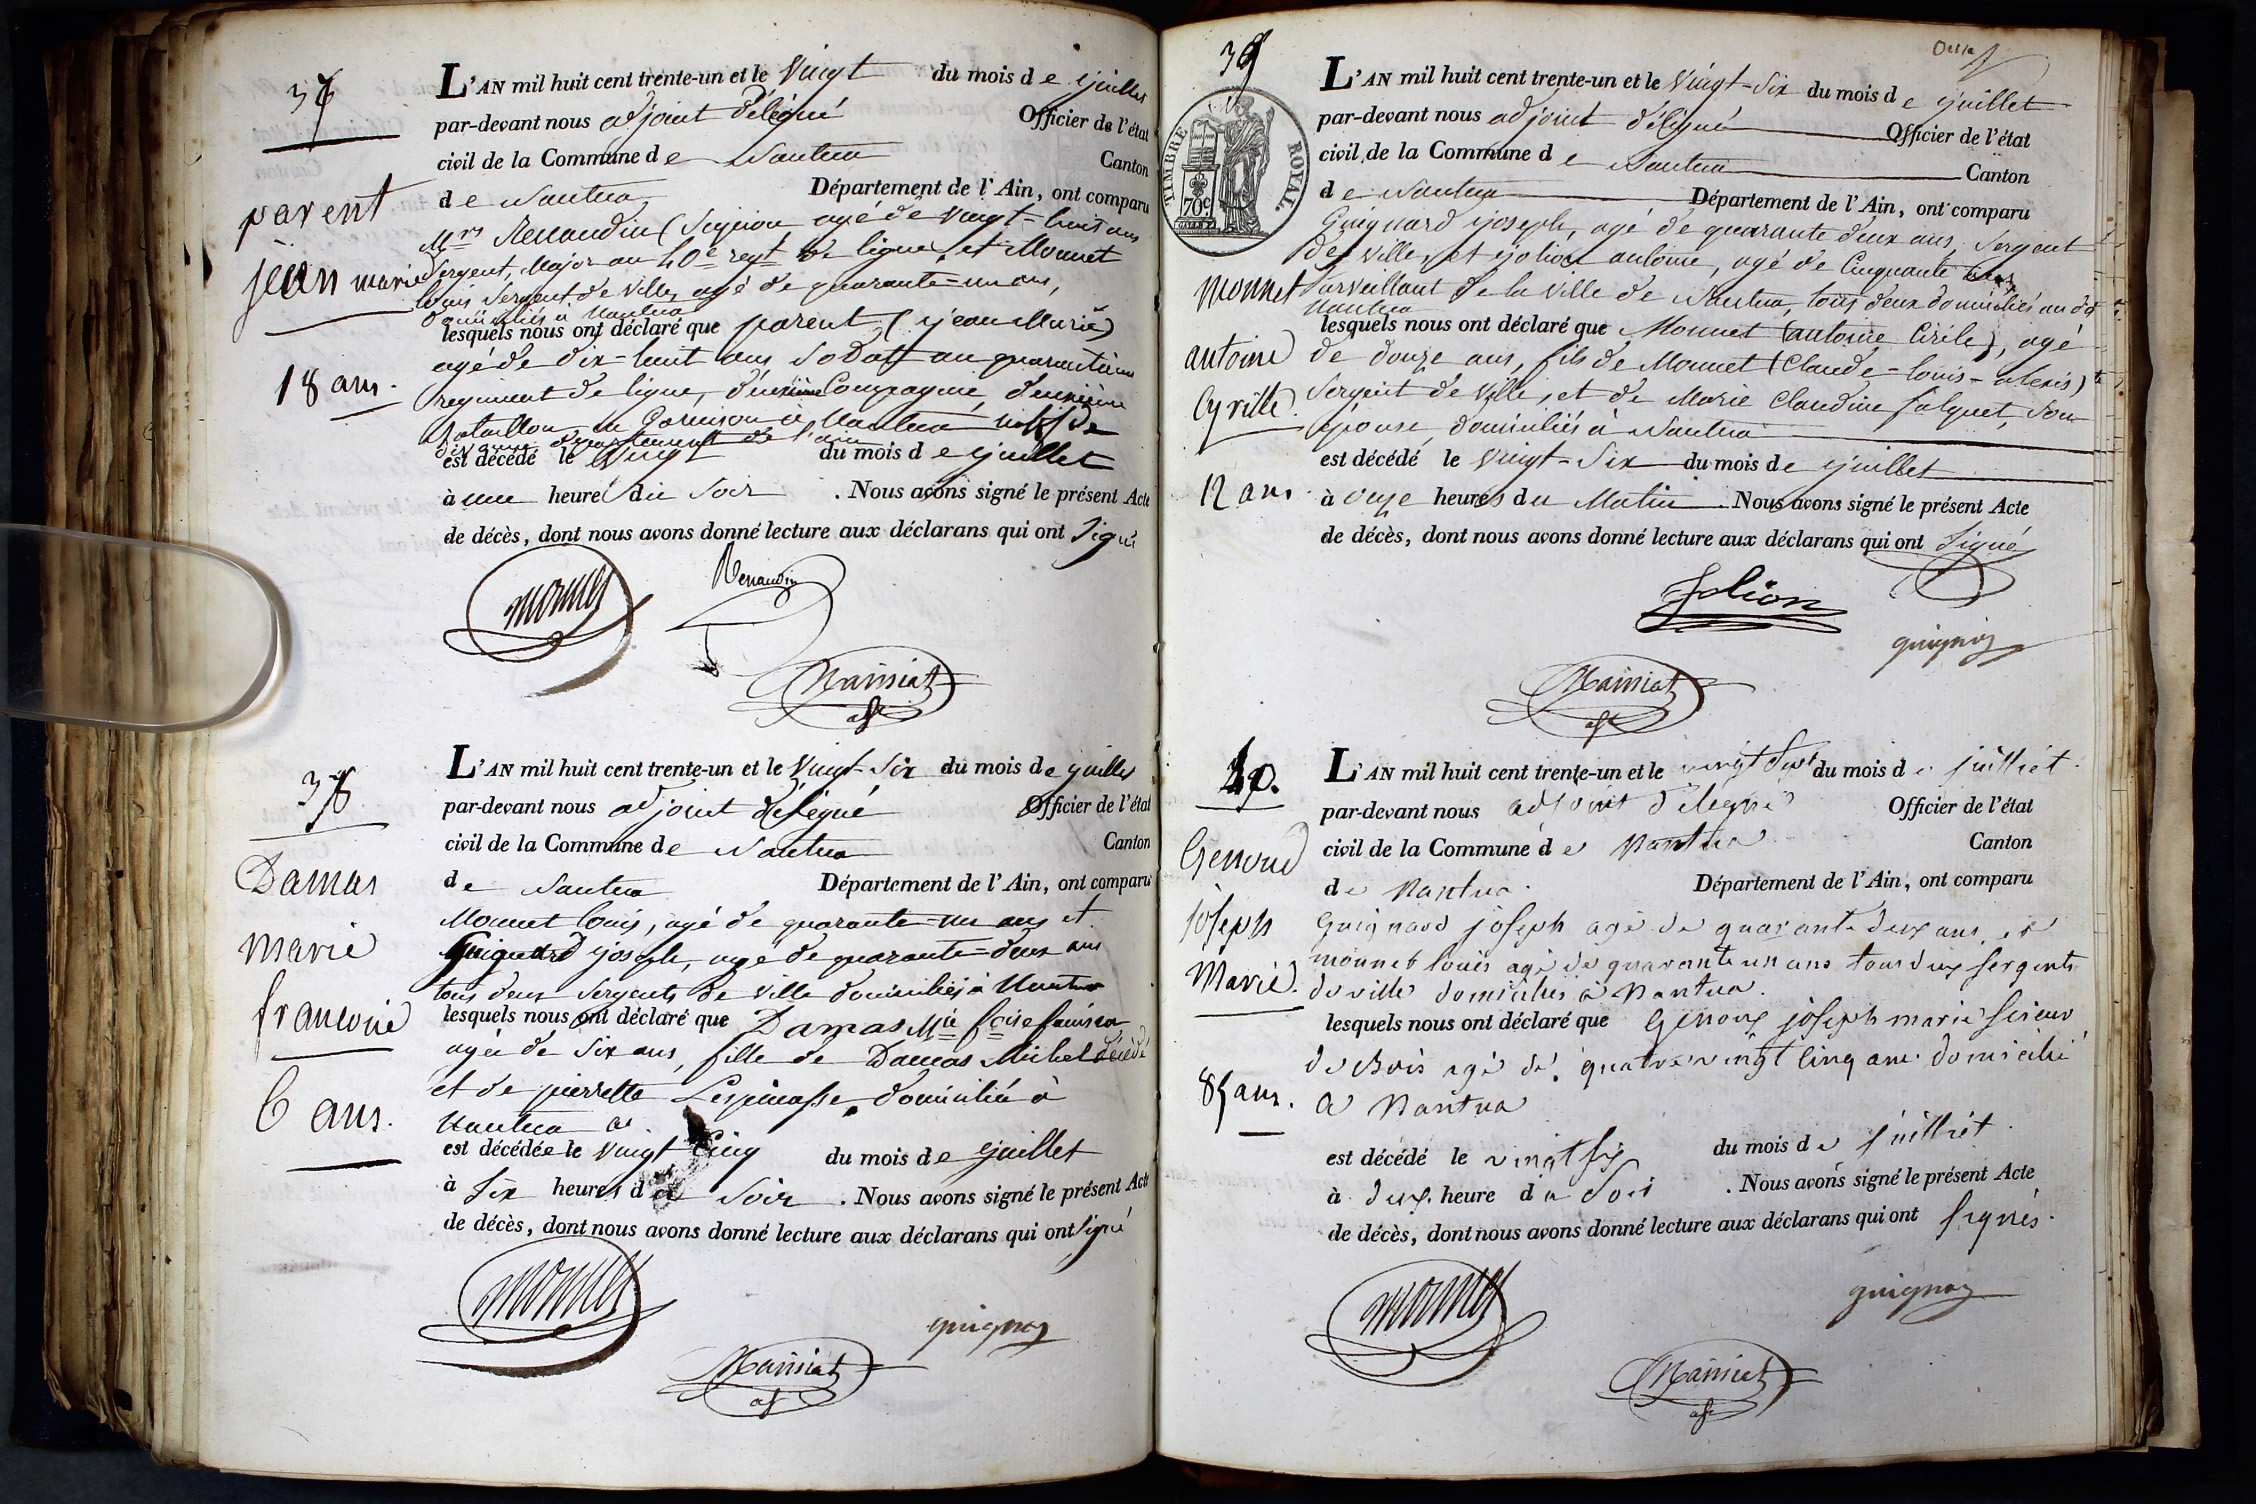 37
parent
jean marie
18 ans.
L'AN mil huit cent trente-un et le Vingt du mois de juillet
par-devant nous adjoint délégué Officier de l'état
civil de la Commune de Nantua Canton
de Nantua Département de l'Ain, ont comparu
Mrs Renaudin agé de vingt-huit ans
Sergent, Major au 40e regt de ligne, et Monnet
louis Sergent de Ville, agé de quarante-un ans,
domiciliés à Nantua
lesquels nous ont déclaré que parent (jean Marie)
agé de dix-huit ans Soldat au quarantième
regiment de ligne, deuxième Compagnie, deuxième
Bataillon, en Garnison à Nantua
département de l'ain
est décédé le Vingt du mois de juillet
à une heure du Soir . Nous avons signé le présent Acte
de décès, dont nous avons donné lecture aux déclarans qui ont Signé
monnet Renaudin
Mainiat
adjt
38
Damas
marie
francoise
6 ans.
L'AN mil huit cent trente-un et le Vingt-Six du mois de juillet
par-devant nous adjoint délégué Officier de l'état
civil de la Commune de Nantua Canton
de Nantua Département de l'Ain, ont comparu
Monnet louis, agé de quarante-un ans et
Guignard joseph, age de quarante-deux ans
tous deux Sergents de Ville domiciliés à Nantua
lesquels nous ont déclaré que Damas Mie fcoise
agée de Six ans, fille de Damas Michel décédé
et de pierrette Lespinasse, domiciliée à
Nantua
est décédée le vingt Cinq du mois de juillet
à Six heures du Soir . Nous avons signé le présent Acte
de décès, dont nous avons donné lecture aux déclarans qui ont Signé
monnet
guignar
Mainiat
adjt
39
TIMBRE ROYAL.
70c
monnet
antoine
Cyrille.
12 ans
L'AN mil huit cent trente-un et le Vingt-Six du mois de juillet
par-devant nous adjoint délégué Officier de l'état
civil de la Commune de Nantua Canton
de Nantua Département de l'Ain, ont comparu
Guignard joseph, agé de quarante deux ans, Sergent
de Ville, et jolion antoine, agé de Cinquante
Surveillant de la Ville de Nantua, tous deux domiciliés au dit
Nantua
lesquels nous ont déclaré que Monnet (antoine Cirile), agé
de douze ans, fils de Monnet (Claude-louis-alexis)
Sergent de Ville, et de Marie Claudine falquet, Son
épouse, domiciliés à Nantua
est décédé le Vingt-Six du mois de juillet
à onze heures du Matin . Nous avons signé le présent Acte
de décès, dont nous avons donné lecture aux déclarans qui ont Signé
Jolion
guignar
Mainiat
adjt
40.
Genoud
joseph
Marie.
85 ans.
L'AN mil huit cent trente-un et le vingt Sept du mois de juilliet
par-devant nous adjoint délégué Officier de l'état
civil de la Commune de Nantua Canton
de Nantua. Département de l'Ain, ont comparu
Guignard joseph agé de quarante deux ans et
monnet louis agé de quarante un ans tous deux sergents
de ville domiciliés à Nantua.
lesquels nous ont déclaré que Genoux joseph marie sieur
de Bois agé de quatre vingt Cinq ans domicilié
à Nantua
est décédé le vingt six du mois de juilliet
à deux heure du Soir . Nous avons signé le présent Acte
de décès, dont nous avons donné lecture aux déclarans qui ont signés.
monnet
guignar
Mainiat
adjt